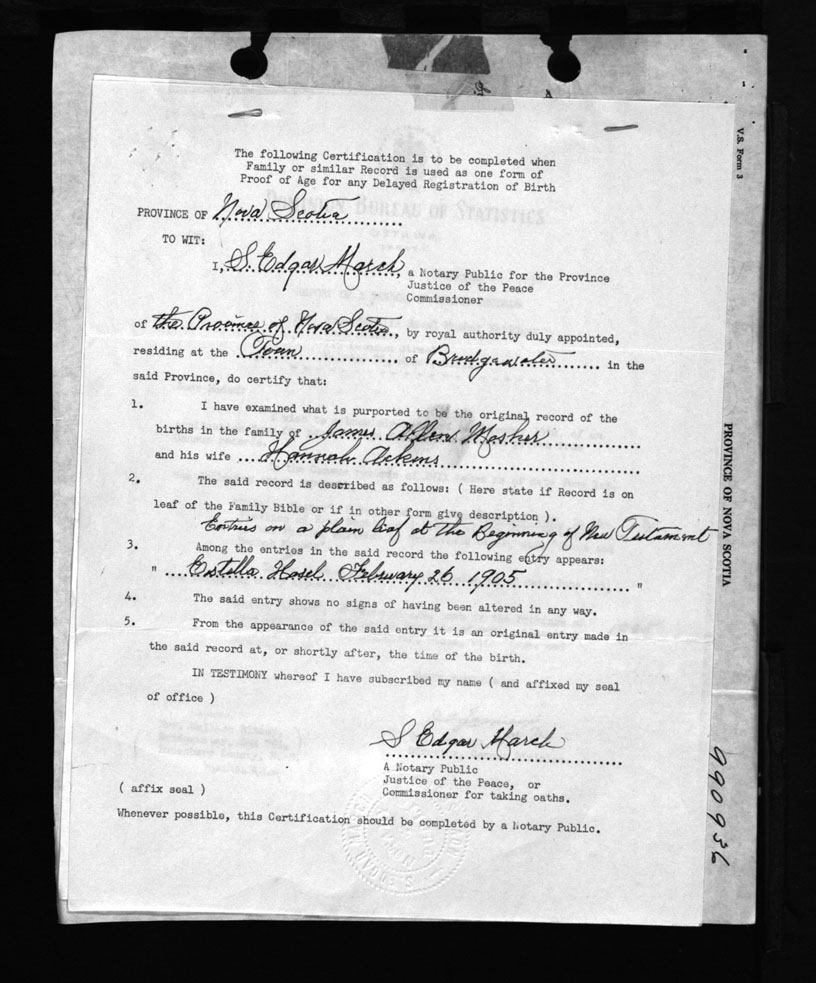 V.S. Form 3
The following Certification is to be completed when
Family or similar Record is used as one form of
Proof of Age for any Delayed Registration of Birth
BUREAU OF STATISTICS
OTTAWA
PROVINCE OF Nova Scotia
TO WIT:
I, S. Edgar March, a Notary Public for the Province
Justice of the Peace
Commissioner
of the Province of Nova Scotia, by royal authority duly appointed,
residing at the Town of Bridgewater in the
said Province, do certify that:
1. I have examined what is purported to be the original record of the
births in the family of James Allen Mosher
and his wife Hannah Ackens
2. The said record is described as follows: ( Here state if Record is on
leaf of the Family Bible or if in other form give description ).
Entries on a plain leaf at the Beginning of New Testament
3. Among the entries in the said record the following entry appears:
" Estella Hasel February 26 1905 "
4. The said entry shows no signs of having been altered in any way.
5. From the appearance of the said entry it is an original entry made in
the said record at, or shortly after, the time of the birth.
IN TESTIMONY whereof I have subscribed my name ( and affixed my seal
of office )
S Edgar March
A Notary Public
Justice of the Peace, or
Commissioner for taking oaths.
( affix seal )
Whenever possible, this Certification should be completed by a Notary Public.
PROVINCE OF NOVA SCOTIA
990936